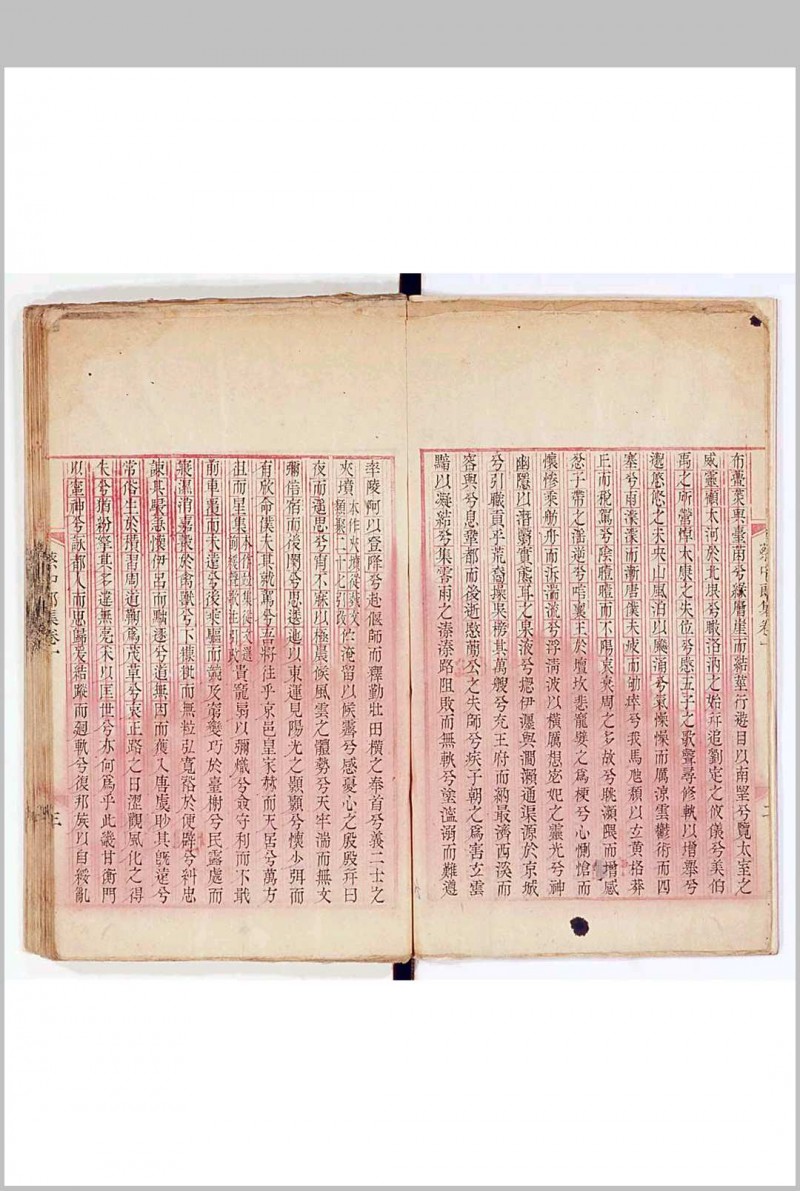 蔡中郎集卷一
二
布蘽萊與臺菌兮緣層崖而結莖行遊目以南望兮覽太室之
威靈顧大河於北垠兮瞰洛汭之始并追劉定之攸儀兮美伯
禹之所營悼太康之失位兮愍五子之歌聲尋修軌以增舉兮
邈悠悠之未央山風泊以飈涌兮氣懆懆而厲涼雲鬱術而四
塞兮雨濛濛而漸唐僕夫疲而劬瘁兮我馬虺頹以玄黃格莽
丘而稅駕兮陰曀曀而不陽哀衰周之多故兮眺瀕隈而增感
忿子帶之淫逆兮唁襄王於壇坎悲寵嬖之爲梗兮心惻愴而
懷慘乘舫舟而泝湍流兮浮清波以橫厲想宓妃之靈光兮神
幽隱以潛翳實熊耳之泉液兮揔伊瀍與澗瀨通渠源於京城
兮引職貢乎荒裔操吳榜其萬艘兮充王府而納最濟西溪而
容與兮息鞏都而後逝愍簡公之失師兮疾子朝之爲害玄雲
黯以凝結兮集零雨之溱溱路阻敗而無軌兮塗濘溺而難遵
率陵阿以登降兮赴偃師而釋勤壯田橫之奉首兮義二士之
夾墳本作夾墳從蓺文類聚二十七引改佇淹留以候霽兮感憂心之殷殷并日
夜而遥思兮宵不寐以極晨候風雲之體勢兮天牢湍而無文
彌信宿而後闋兮思逶迤以東運見陽光之顥顥兮懷少弭而
有欣命僕夫其就駕兮吾將往乎京邑皇家赫而天居兮萬方
徂而星集貴寵扇以彌熾兮僉守利而不戢
前車覆而未遠兮後乘驅而競及窮變巧於臺榭兮民露處而
寑溼消嘉穀於禽獸兮下糠粃而無粒弘寬裕於便辟兮糾忠
諫其駸急懷伊呂而黜逐兮道無因而獲入唐虞眇其旣遠兮
常俗生於積習周道鞠爲茂草兮哀正路之日澀觀風化之得
失兮猶紛拏其多違無亮采以匡世兮亦何爲乎此畿甘衡門
以寧神兮詠都人而思歸爰結蹤而廻軌兮復邦族以自綏亂
蔡中郎集卷一
三